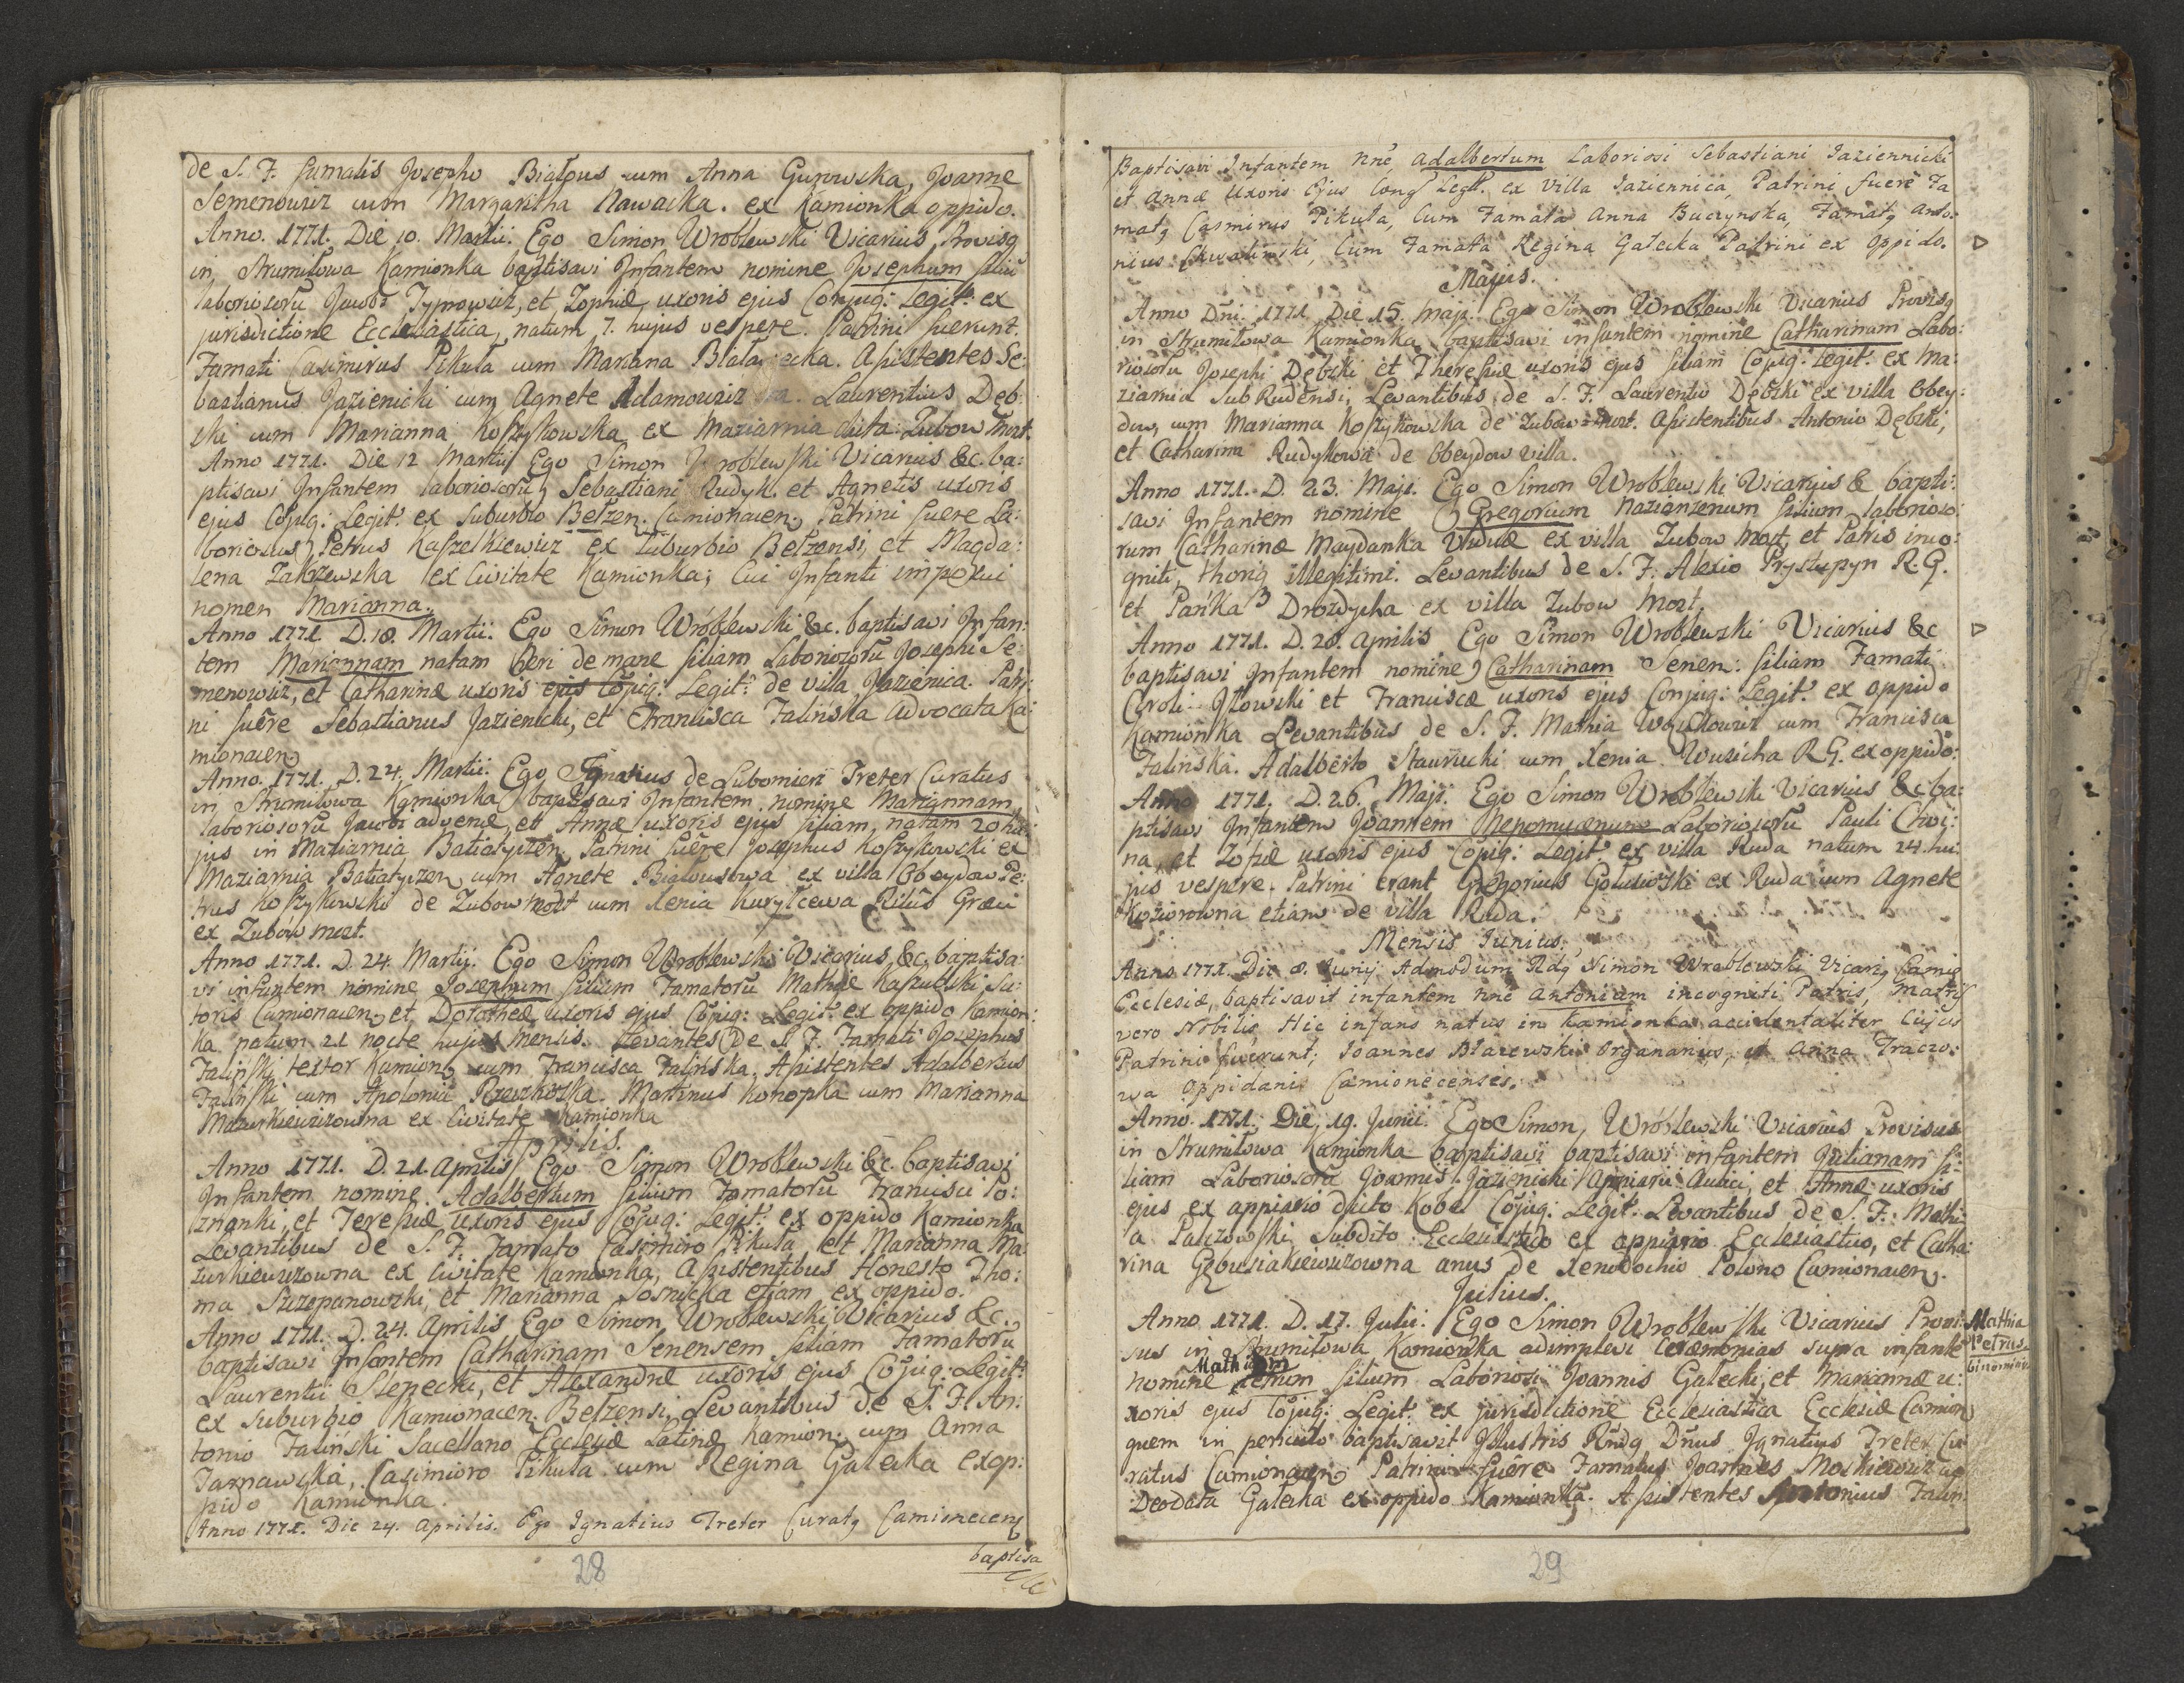 de S. F. Famatis Josepho Białous cum Anna Gurowska, Joanne
Semenowicz cum Margaritha Nawacka. ex Kamionka oppido.
Anno. 1771. Die 10. Martii. Ego Simon Wroblewski Vicarius Provisq
in Strumiłowa Kamionka baptisavi Infantem nomine Josephum filiū
laboriosorū Jacobi Tyrowicz, et Zophiæ uxoris ejus Conjug: Legit: ex
jurisdictione Ecclesiastica, natum 7. hujus vespere. Patrini fuerunt.
Famati Casimirus Pikuła cum Mariana Assistentes Se:
bastianus Jazienicki cum Agnete Adamowicz Laurentius Dęb:
ski cum Marianna Koszykowska ex Maziarnia dicta Zubow Most.
Anno 1771. Die 12 Martii Ego Simon Wroblewski Vicarius &c. ba:
ptisavi Infantem laboriosorū Sebastiani Rudyk. et Agnetis uxoris
ejus Cōjug: Legit: ex Suburbio Bełzen. Camionacen. Patrini fuere La:
boriosus Petrus Kaszelkiewicz ex Suburbio Bełzensi et Magda:
lena Zakrzewska ex Civitate Kamionka; Cui Infanti imposui
nomen Marianna.
Anno 1771. D. 18. Martii. Ego Simon Wróblewski &c. baptisavi Infan:
tem Mariannam natam heri de mane filiam Laboriosorū Josephi Se:
menowicz, et Catharinæ uxoris ejus Cōjug: Legit: de villa Jazienica. Patri:
ni fuēre Sebastianus Jazienicki, et Francisca Falinska Advocata Ka:
mionacen.
Anno. 1771. D. 24. Martii. Ego Ignatius de Lubomierz Treter Curatus
in Strumiłowa Kamionka baptisavi Infantem nomine Mariannam
laboriosorū Jacobi advenæ, et Annæ uxoris ejus filiam, natam 20 hu:
jus in Maziarnia Batiatyczen. Patrini fuēre Josephus Koszykowski ex
Maziarnia Batiatyczen, cum Agnete Białousowa ex villa Obeydow Pe:
trus Koszykowski de Zubow Most cum Xenia Kuryłcewa Ritūs Græci
ex Zubow most.
Anno 1771. D. 24. Martij. Ego Simon Wroblewski Vicarius &c, baptisa:
vi infantem nomine Josephum filium Famatorū Mathiæ Kaszulski Su:
toris Camionacen. et Dorotheæ uxoris ejus Cōjug: Legit: ex oppido Kamion:
ka natum 21 nocte hujus Mensis. Levantes De S. F. Famati Josephus
Faliński textor Kamion. cum Francisca Falinska, Assistentes Adalbertus
Faliński cum Apolonia Rzeszkoska. Martinus Konopka cum Marianna
Mazurkiewiczowna ex Civitate Kamionka
Aprilis.
Anno 1771. D. 21. Aprilis Ego Simon Wroblewski &c. baptisavi
Infantem nomine Adalbertum filium Famatorū Francisci Po:
znanki, et Teressiæ uxoris ejus Cōjug: Legit: ex oppido Kamionka
Levantibus de S. F. Famato Casimiro Pikuła et Marianna Ma:
zurkiewiczowna ex Civitate Kamionka, Assistentibus Honesto Tho:
ma Szczepanowski, et Marianna Sosnicka etiam ex oppido.
Anno 1771. D. 24. Aprilis Ego Simon Wroblewski Vicarius &c.
baptisavi Infantem Catharinam Senensem filiam Famatorū
Laurentii Slepecki, et Alexandræ uxoris ejus Cōjug: Legit:
ex Suburbio Kamionacen. Bełzensi, Levantibus De S. F. An:
tonio Faliński Sacellano Ecclesiæ Latinæ Kamion. cum Anna
Tarnawska, Casimioro Pikuła cum Regina Gałecka exop:
pido Kamionka.
Anno 1771. Die 24. Aprilis. Ego Ignatius Treter Curatq Camionecens
baptisa
28
Baptisavi Infantem nnē Adalbertum Laboriosi Sebastiani Jaziennicki
et Annæ Uxoris Ejus Cong Legit: ex Villa Jaziennica, Patrini fuerē Fa
matq Casmirus Pikuła, Cum Famata Anna Buczynska, Famatq Anto:
nius Chwalinski, Cum Famata Regina Gałecka Patrini ex Oppido.
Majus.
Anno Dni. 1771. Die 15. Maji. Ego Simon Wroblewski Vicarius Provisq
in Strumiłowa Kamionka baptisavi infantem nomine Catharinam Labo:
riosorū Josephi Dębski et Theressiæ uxoris ejus filiam Cōjug: Legit: ex Ma:
ziarnia Sub Rudensi, Levantibus de S. F. Laurentio Dębski ex villa Obey:
dow, cum Marianna Koszykowska de Zubow-most. Assistentibus Antonio Dębski,
et Catharina Rudykowa de Obeydow villa.
Anno 1771. D. 23. Maji. Ego Simon Wroblewski Vicarius & bapti:
savi Infantem nomine Gregorium Nazianzenum filium laborioso:
rum Catharinæ Maydanka Viduæ ex villa Zubow Most, et Patris inco:
gniti, thoriq illegitimi. Levantibus de S. F. Alexio Prystupyn R. G.
et Pańka Drozdycha ex villa Zubow Most.
Anno 1771. D. 28. Aprilis Ego Simon Wroblewski Vicarius &c
baptisavi Infantem nomine Catharinam Senen: filiam Famati
Caroli Iłowski et Franciscæ uxoris ejus Conjug: Legit: ex oppido
Kamionka Levantibus de S. F. Mathia Woyckowicz cum Francisca
Falinska. Adalberto Stawnicki cum Xenia Wuzicha R. G. ex oppido:
Anno 1771. D. 26. Maji. Ego Simon Wroblewski Vicarius &c ba:
ptisavi Infantem Joannem Nepomucenum Laboriosorū Pauli Choi:
na, et Zofiæ uxoris ejus Cōjug: Legit: ex villa Ruda natum 24. hu:
jus vespere. Patrini erant Gregorius Gołuzowski ex Ruda cum Agnete
Koziorowna etiam de villa Ruda.
Mensis Junius.
Anno 1771. Die 8. Junij Admodum Rdq Simon Wroblowski Vicariq Camie
Ecclesiæ, baptisavit infantem nnē Antoniam incogniti Patris, Matris
vero Nobilis Hic infans natus in Kamionka accidentaliter Cujus
Patrini fuerunt; Joannes Błazewski Organarius, et Anna Traczo:
wa Oppidanis Camionecenses.
Anno. 1771. Die 19. Junii. Ego Simon, Wróblewski Vicarius Provisus
in Strumiłowa Kamionka baptisavi baptisavi infantem Julianam fi:
liam Laboriosorū Joannis Jazienicki Apriarii Aulici, et Annæ uxoris
ejus ex appiario dicto Kobel Cōjug: Legit. Levantibus de S. F. Mathi:
a Palczowski, Subdito Ecclesiastico ex appiario Ecclesiastico, et Catha:
rina Gębusiakiewiczowna anus de Xenodochio Polono Camionacen.
Julius.
Anno 1771. D. 17. Julii. Ego Simon Wroblewski Vicarius Provi:
sus in Strumiłowa Kamionka adimplevi Ceremonias supra infantē
Mathiam
nomine Petrum filium Laboriosi Joannis Gałecki, et Mariannæ u:
xoris ejus Cōjug: Legit: ex jurisdictione Ecclesiastica Ecclesiæ Camion
quem in periculo baptisavit Illustris Rndq Dnus Ignatius Treter Cu
ratus Camionacen. Patrini fuēre Famatus Joannes Moskiewicz cu
Deodata Gałecka ex oppido Kamionka. Assistentes Antonius Falin
Mathia
Petrus
binominis
29